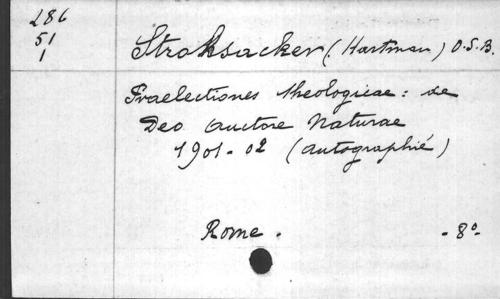 286
51
1
Stroksacker (Hartman) O.S.B.
Praelectiones theologicae : de
Deo Auctore Naturae
1901-02 (autographié)
Rome. - 8º-